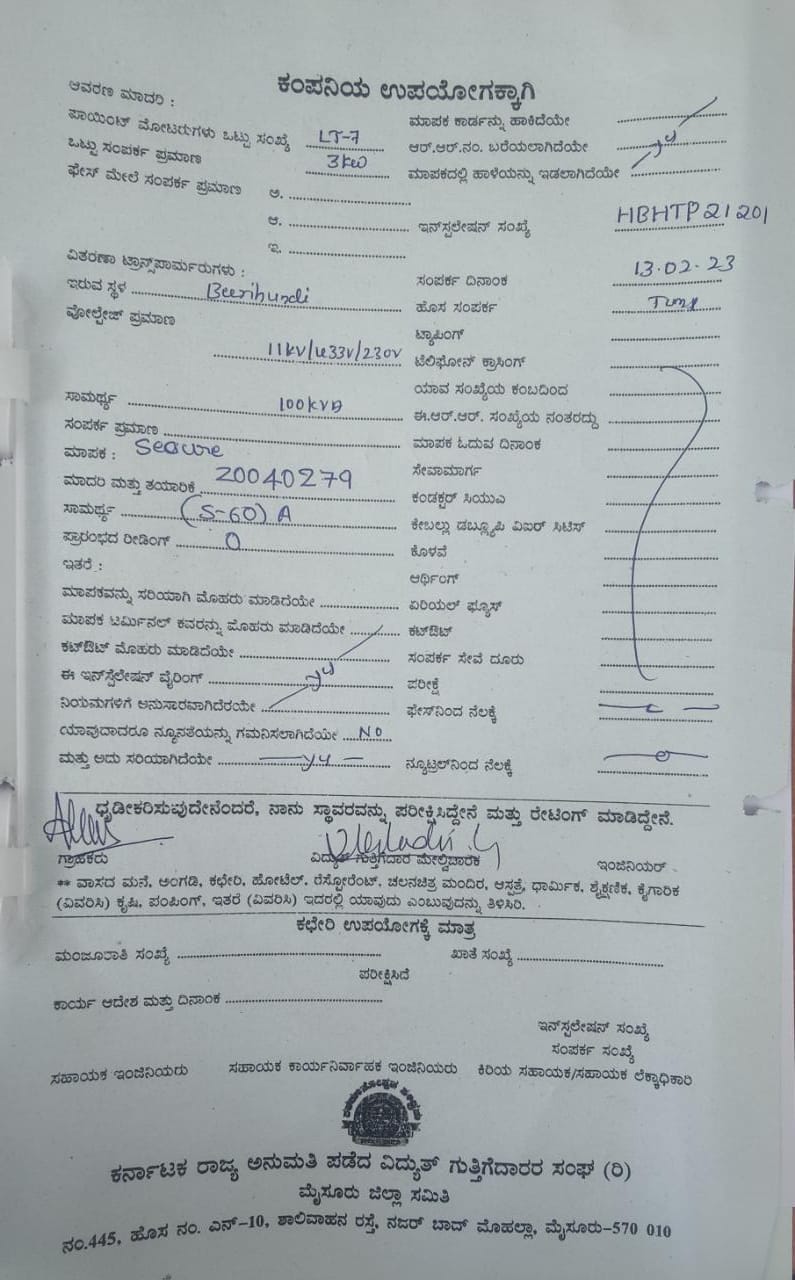 ಕಂಪನಿಯ ಉಪಯೋಗಕ್ಕಾಗಿ
ಆವರಣ ಮಾದರಿ :
ಪಾಯಿಂಟ್ ಮೋಟರುಗಳು ಒಟ್ಟು ಸಂಖ್ಯೆ LT-7
ಒಟ್ಟು ಸಂಪರ್ಕ ಪ್ರಮಾಣ 3kw
ಫೇಸ್ ಮೇಲೆ ಸಂಪರ್ಕ ಪ್ರಮಾಣ ಅ.
ಆ.
ಇ.
ವಿತರಣಾ ಟ್ರಾನ್ಸ್‌ಪಾರ್ಮರುಗಳು :
ಇರುವ ಸ್ಥಳ Beerihundi
ವೋಲ್ಟೇಜ್ ಪ್ರಮಾಣ
11kV/433V/230V
ಸಾಮರ್ಥ್ಯ 100kVA
ಸಂಪರ್ಕ ಪ್ರಮಾಣ
ಮಾಪಕ : Secure
ಮಾದರಿ ಮತ್ತು ತಯಾರಿಕೆ 20040279
ಸಾಮರ್ಥ್ಯ (5-60) A
ಪ್ರಾರಂಭದ ರೀಡಿಂಗ್ 0
ಇತರೆ :
ಮಾಪಕವನ್ನು ಸರಿಯಾಗಿ ಮೊಹರು ಮಾಡಿದೆಯೇ
ಮಾಪಕ ಟರ್ಮಿನಲ್ ಕವರನ್ನು ಮೊಹರು ಮಾಡಿದೆಯೇ
ಕಟ್‌ಔಟ್ ಮೊಹರು ಮಾಡಿದೆಯೇ
ಈ ಇನ್‌ಸ್ಟಲೇಷನ್ ವೈರಿಂಗ್
ನಿಯಮಗಳಿಗೆ ಅನುಸಾರವಾಗಿದೆರಯೇ
ಯಾವುದಾದರೂ ನ್ಯೂನತೆಯನ್ನು ಗಮನಿಸಲಾಗಿದೆಯೇ No
ಮತ್ತು ಅದು ಸರಿಯಾಗಿದೆಯೇ
ಮಾಪಕ ಕಾರ್ಡನ್ನು ಹಾಕಿದೆಯೇ
ಆರ್.ಆರ್.ನಂ. ಬರೆಯಲಾಗಿದೆಯೇ
ಮಾಪಕದಲ್ಲಿ ಹಾಳೆಯನ್ನು ಇಡಲಾಗಿದೆಯೇ
ಇನ್‌ಸ್ಟಲೇಷನ್ ಸಂಖ್ಯೆ HBHTP21201
ಸಂಪರ್ಕ ದಿನಾಂಕ 13.02.23
ಹೊಸ ಸಂಪರ್ಕ
ಟ್ಯಾಪಿಂಗ್
ಟೆಲಿಫೋನ್ ಕ್ರಾಸಿಂಗ್
ಯಾವ ಸಂಖ್ಯೆಯ ಕಂಬದಿಂದ
ಈ.ಆರ್.ಆರ್. ಸಂಖ್ಯೆಯ ನಂತರದ್ದು
ಮಾಪಕ ಓದುವ ದಿನಾಂಕ
ಸೇವಾಮಾರ್ಗ
ಕಂಡಕ್ಟರ್ ಸಿಯುಎ
ಕೇಬಲ್ಲು ಡಬ್ಲ್ಯೂಪಿ ವಿಐಆರ್ ಸಿಟಿಸ್
ಕೊಳವೆ
ಆರ್ಥಿಂಗ್
ಏರಿಯಲ್ ಫ್ಯೂಸ್
ಕಟ್‌ಔಟ್
ಸಂಪರ್ಕ ಸೇವೆ ದೂರು
ಪರೀಕ್ಷೆ
ಫೇಸ್‌ನಿಂದ ನೆಲಕ್ಕೆ
ನ್ಯೂಟ್ರಲ್‌ನಿಂದ ನೆಲಕ್ಕೆ
ಧೃಡೀಕರಿಸುವುದೇನೆಂದರೆ, ನಾನು ಸ್ಥಾವರವನ್ನು ಪರೀಕ್ಷಿಸಿದ್ದೇನೆ ಮತ್ತು ರೇಟಿಂಗ್ ಮಾಡಿದ್ದೇನೆ.
ಗ್ರಾಹಕರು ವಿದ್ಯುತ್ ಗುತ್ತಿಗೆದಾರ ಮೇಲ್ವಿಚಾರಕ ಇಂಜಿನಿಯರ್
** ವಾಸದ ಮನೆ, ಅಂಗಡಿ, ಕಛೇರಿ, ಹೋಟೆಲ್, ರೆಸ್ಟೋರೆಂಟ್, ಚಲನಚಿತ್ರ ಮಂದಿರ, ಆಸ್ಪತ್ರೆ, ಧಾರ್ಮಿಕ, ಶೈಕ್ಷಣಿಕ, ಕೈಗಾರಿಕ
(ವಿವರಿಸಿ) ಕೃಷಿ, ಪಂಪಿಂಗ್, ಇತರೆ (ವಿವರಿಸಿ) ಇದರಲ್ಲಿ ಯಾವುದು ಎಂಬುವುದನ್ನು ತಿಳಿಸಿರಿ.
ಕಛೇರಿ ಉಪಯೋಗಕ್ಕೆ ಮಾತ್ರ
ಮಂಜೂರಾತಿ ಸಂಖ್ಯೆ ಖಾತೆ ಸಂಖ್ಯೆ
ಪರೀಕ್ಷಿಸಿದೆ
ಕಾರ್ಯ ಆದೇಶ ಮತ್ತು ದಿನಾಂಕ
ಇನ್‌ಸ್ಟಲೇಷನ್ ಸಂಖ್ಯೆ
ಸಂಪರ್ಕ ಸಂಖ್ಯೆ
ಸಹಾಯಕ ಇಂಜಿನಿಯರು ಸಹಾಯಕ ಕಾರ್ಯನಿರ್ವಾಹಕ ಇಂಜಿನಿಯರು ಕಿರಿಯ ಸಹಾಯಕ/ಸಹಾಯಕ ಲೆಕ್ಕಾಧಿಕಾರಿ
ಕರ್ನಾಟಕ ರಾಜ್ಯ ಅನುಮತಿ ಪಡೆದ ವಿದ್ಯುತ್ ಗುತ್ತಿಗೆದಾರರ ಸಂಘ (ರಿ)
ಮೈಸೂರು ಜಿಲ್ಲಾ ಸಮಿತಿ
ನಂ.445, ಹೊಸ ನಂ. ಎನ್-10, ಶಾಲಿವಾಹನ ರಸ್ತೆ, ನಜರ್ ಬಾದ್ ಮೊಹಲ್ಲಾ, ಮೈಸೂರು-570 010